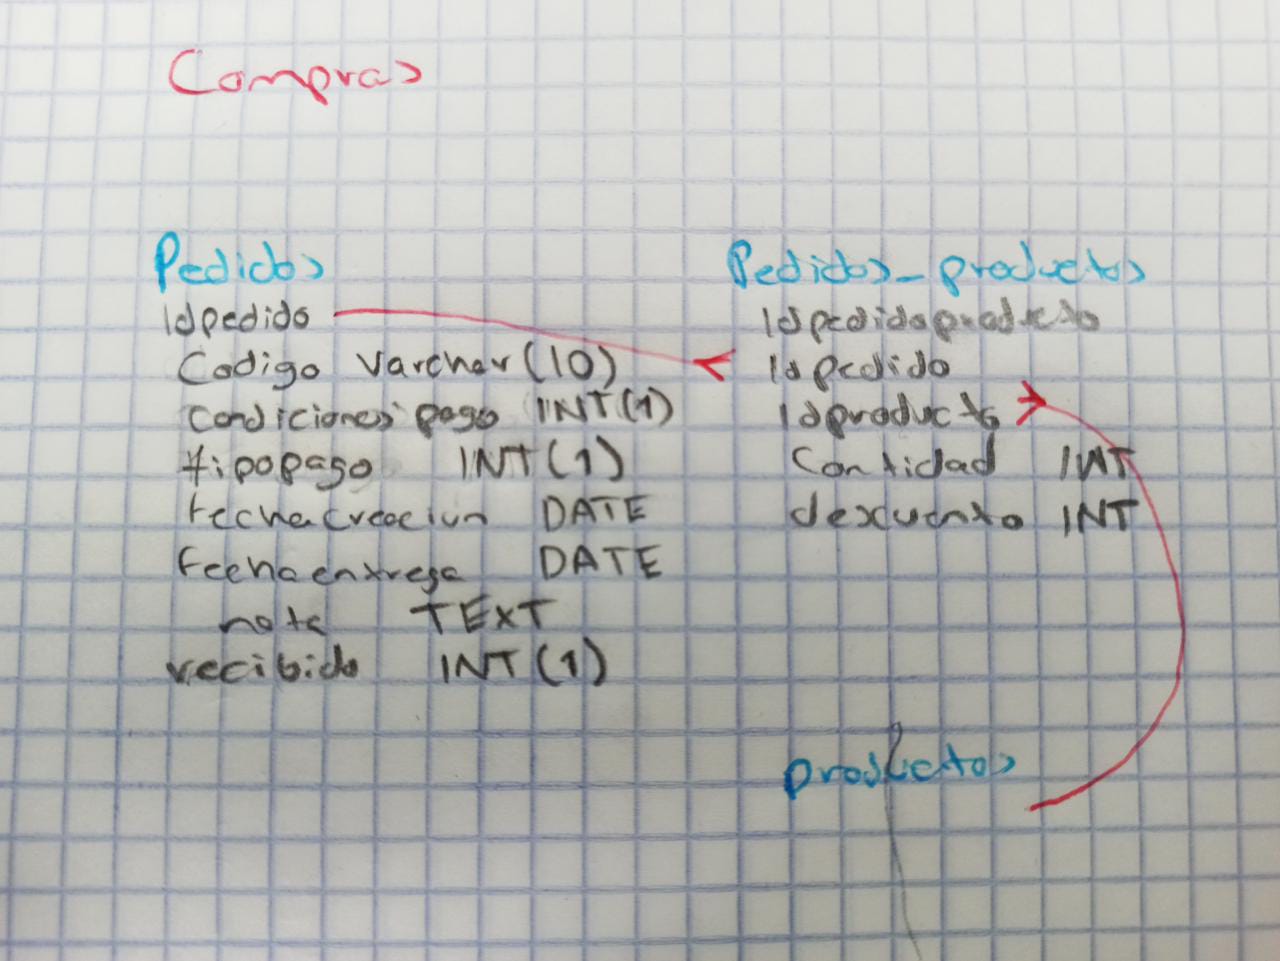 Compras
Pedidos
Idpedido
Codigo Varchar(10)
condiciones pago INT(1)
tipopago INT(1)
fechacreacion DATE
fechaentrega DATE
nota TEXT
recibido INT(1)
Pedidos_productos
Idpedidoproducto
Idpedido
Idproducto
Cantidad INT
descuento INT
productos